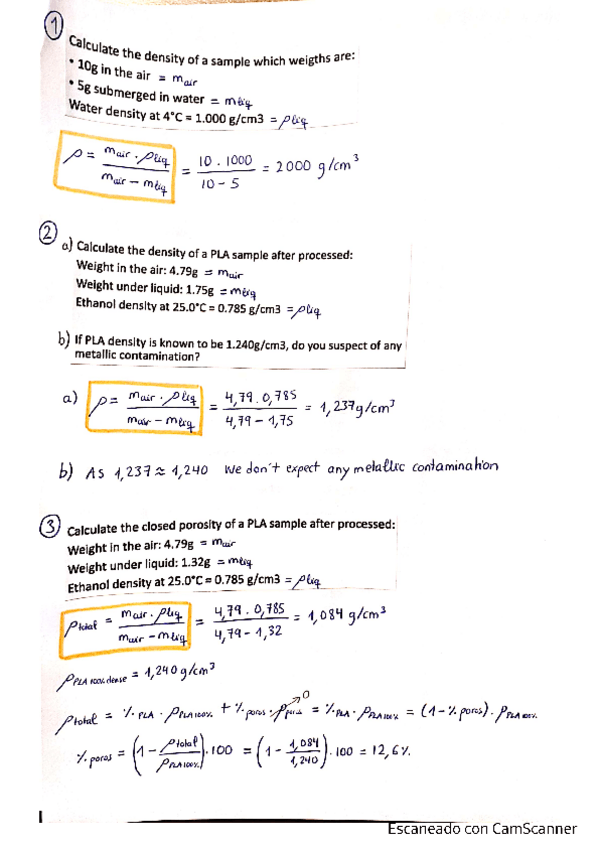 1
Calculate the density of a sample which weigths are:
• 10g in the air = m air
• 5g submerged in water = m liq
Water density at 4°C = 1.000 g/cm3 = ρ liq
ρ = m air · ρ liq / m air − m liq = 10 . 1000 / 10 - 5 = 2000 g/cm³
2
a) Calculate the density of a PLA sample after processed:
Weight in the air: 4.79g = m air
Weight under liquid: 1.75g = m liq
Ethanol density at 25.0°C = 0.785 g/cm3 = ρ liq
b) If PLA density is known to be 1.240g/cm3, do you suspect of any
metallic contamination?
a) ρ = m air · ρ liq / m air − m liq = 4,79 . 0,785 / 4,79 − 1,75 = 1,237 g/cm³
b) As 1,237 ≈ 1,240 we don't expect any metallic contamination
3
Calculate the closed porosity of a PLA sample after processed:
Weight in the air: 4.79g = m air
Weight under liquid: 1.32g = m liq
Ethanol density at 25.0°C = 0.785 g/cm3 = ρ liq
ρ total = m air · ρ liq / m air − m liq = 4,79 . 0,785 / 4,79 - 1,32 = 1,084 g/cm³
ρ PLA 100% dense = 1,240 g/cm³
ρ total = % PLA · ρ PLA 100% + % poros · ρ poros → 0 = % PLA · ρ PLA 100% = (1 - % poros) · ρ PLA 100%
% poros = (1 − ρ total / ρ PLA 100%) · 100 = (1 − 1,084 / 1,240) · 100 = 12,6 %
Escaneado con CamScanner